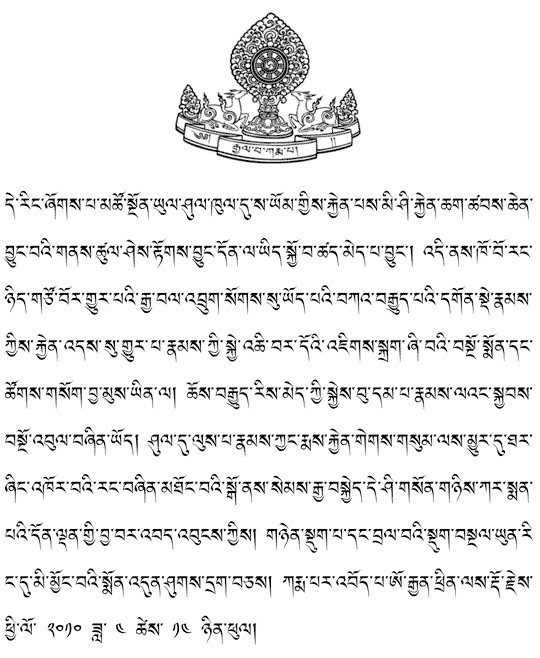 ༄༅། རྒྱལ་བ་ཀརྨ་པ། །།
དེ་རིང་ཞོགས་པ་མཚོ་སྔོན་ཡུལ་ཤུལ་ཁུལ་དུ་ས་ཡོམ་གྱིས་རྐྱེན་པས་མི་ཤི་རྐྱེན་ཆག་ཚབས་ཆེན་
བྱུང་བའི་གནས་ཚུལ་ཤེས་རྟོགས་བྱུང་དོན་ལ་ཡིད་སྐྱོ་བ་ཚད་མེད་པ་བྱུང་། འདི་ནས་ཁོ་བོ་རང་
ཉིད་གཙོ་བོར་གྱུར་པའི་རྒྱ་བལ་འབྲུག་སོགས་སུ་ཡོད་པའི་བཀའ་བརྒྱུད་པའི་དགོན་སྡེ་རྣམས་
ཀྱིས་རྐྱེན་འདས་སུ་གྱུར་པ་རྣམས་ཀྱི་སྐྱེ་འཆི་བར་དོའི་འཇིགས་སྐྲག་ཞི་བའི་བསྔོ་སྨོན་དང་
ཚོགས་གསོག་བྱ་མུས་ཡིན་ལ། ཆོས་བརྒྱུད་རིས་མེད་ཀྱི་སྐྱེས་བུ་དམ་པ་རྣམས་ལའང་སྐྱབས་
བསྔོ་འབུལ་བཞིན་ཡོད། ཤུལ་དུ་ལུས་པ་རྣམས་ཀྱང་རྨས་རྐྱེན་གེགས་གསུམ་ལས་མྱུར་དུ་ཐར་
ཞིང་འཁོར་བའི་རང་བཞིན་མཐོང་བའི་སྒོ་ནས་སེམས་རྒྱ་བསྐྱེད་དེ་ཤི་གསོན་གཉིས་ཀར་སྨན་
པའི་དོན་ལྡན་གྱི་བྱ་བར་འབད་འབུངས་ཀྱིས། གཉེན་སྡུག་པ་དང་བྲལ་བའི་སྡུག་བསྔལ་ཡུན་རི
ང་དུ་མི་མྱོང་བའི་སྨོན་འདུན་ཤུགས་དྲག་བཅས། ཀརྨ་པར་འབོད་པ་ཨོ་རྒྱན་ཕྲིན་ལས་རྡོ་རྗེས་
ཕྱི་ལོ་ ༢༠༡༠ ཟླ་ ༤ ཚེས་ ༡༤ ཉིན་ཕུལ།